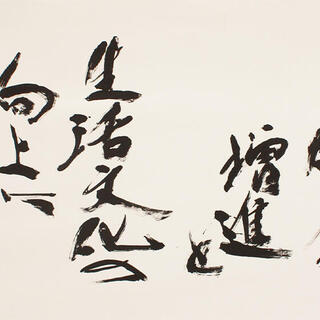 増進
と
生活文化の
向上に